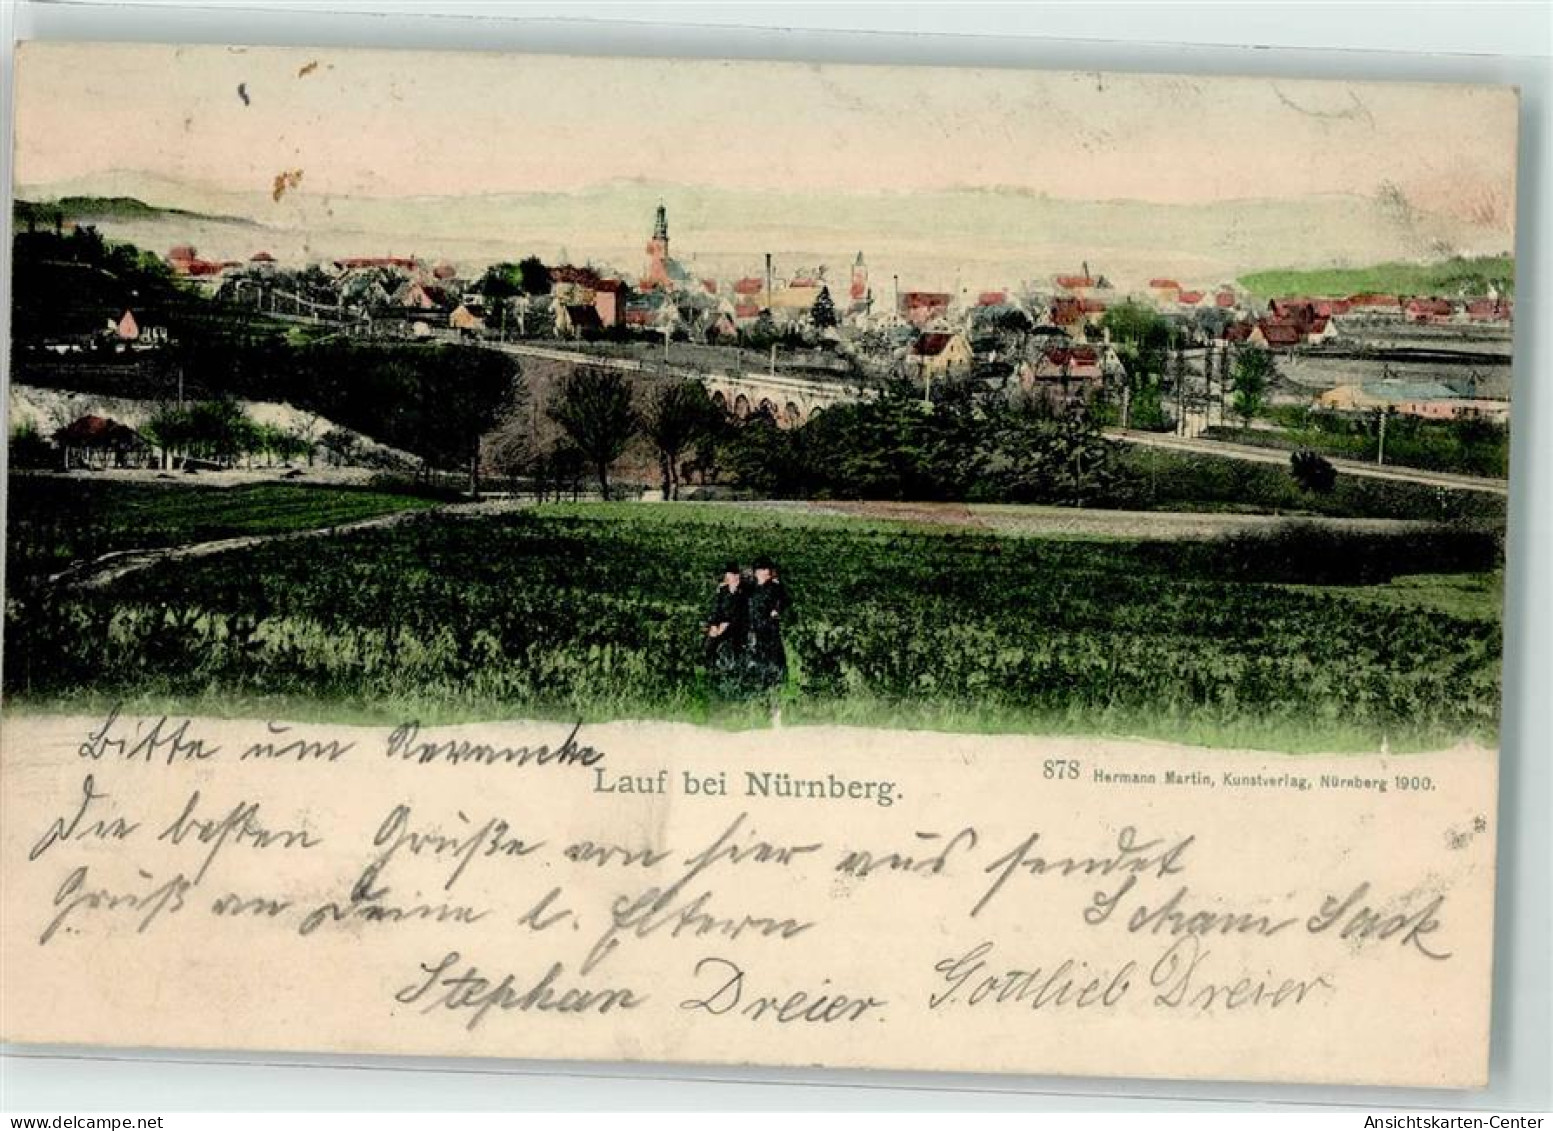 Bitte um Revanche
Lauf bei Nürnberg.
878 Hermann Martin, Kunstverlag, Nürnberg 1900.
Die besten Grüße von hier aus sendet
Gruß an Deine l. Eltern
Stephan Dreier. Gottlieb Dreier
Ansichtskarten-Center